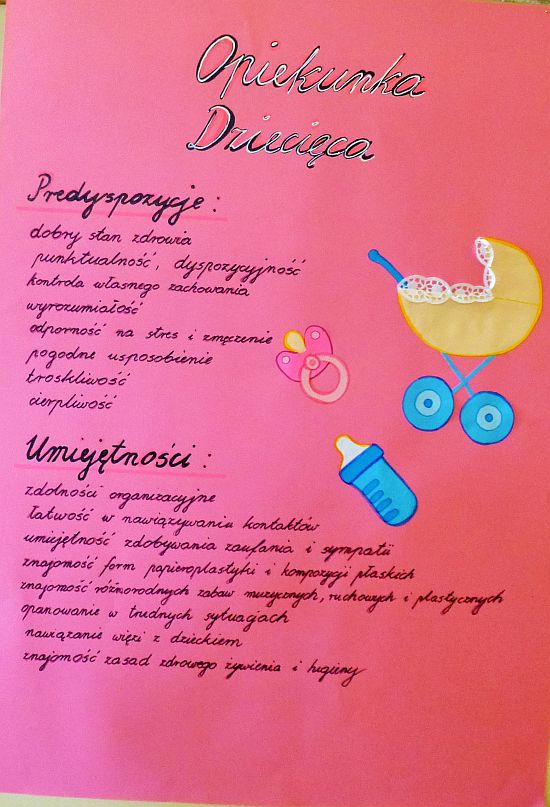 Opiekunka
Dziecięca
Predyspozycje:
dobry stan zdrowia
punktualność, dyspozycyjność
kontrola własnego zachowania
wyrozumiałość
odporność na stres i zmęczenie
pogodne usposobienie
troskliwość
cierpliwość
Umiejętności:
zdolności organizacyjne
łatwość w nawiązywaniu kontaktów
umiejętność zdobywania zaufania i sympatii
znajomość form papieroplastyki i kompozycji płaskich
znajomość różnorodnych zabaw muzycznych, ruchowych i plastycznych
opanowanie w trudnych sytuacjach
nawiązanie więzi z dzieckiem
znajomość zasad zdrowego żywienia i higieny